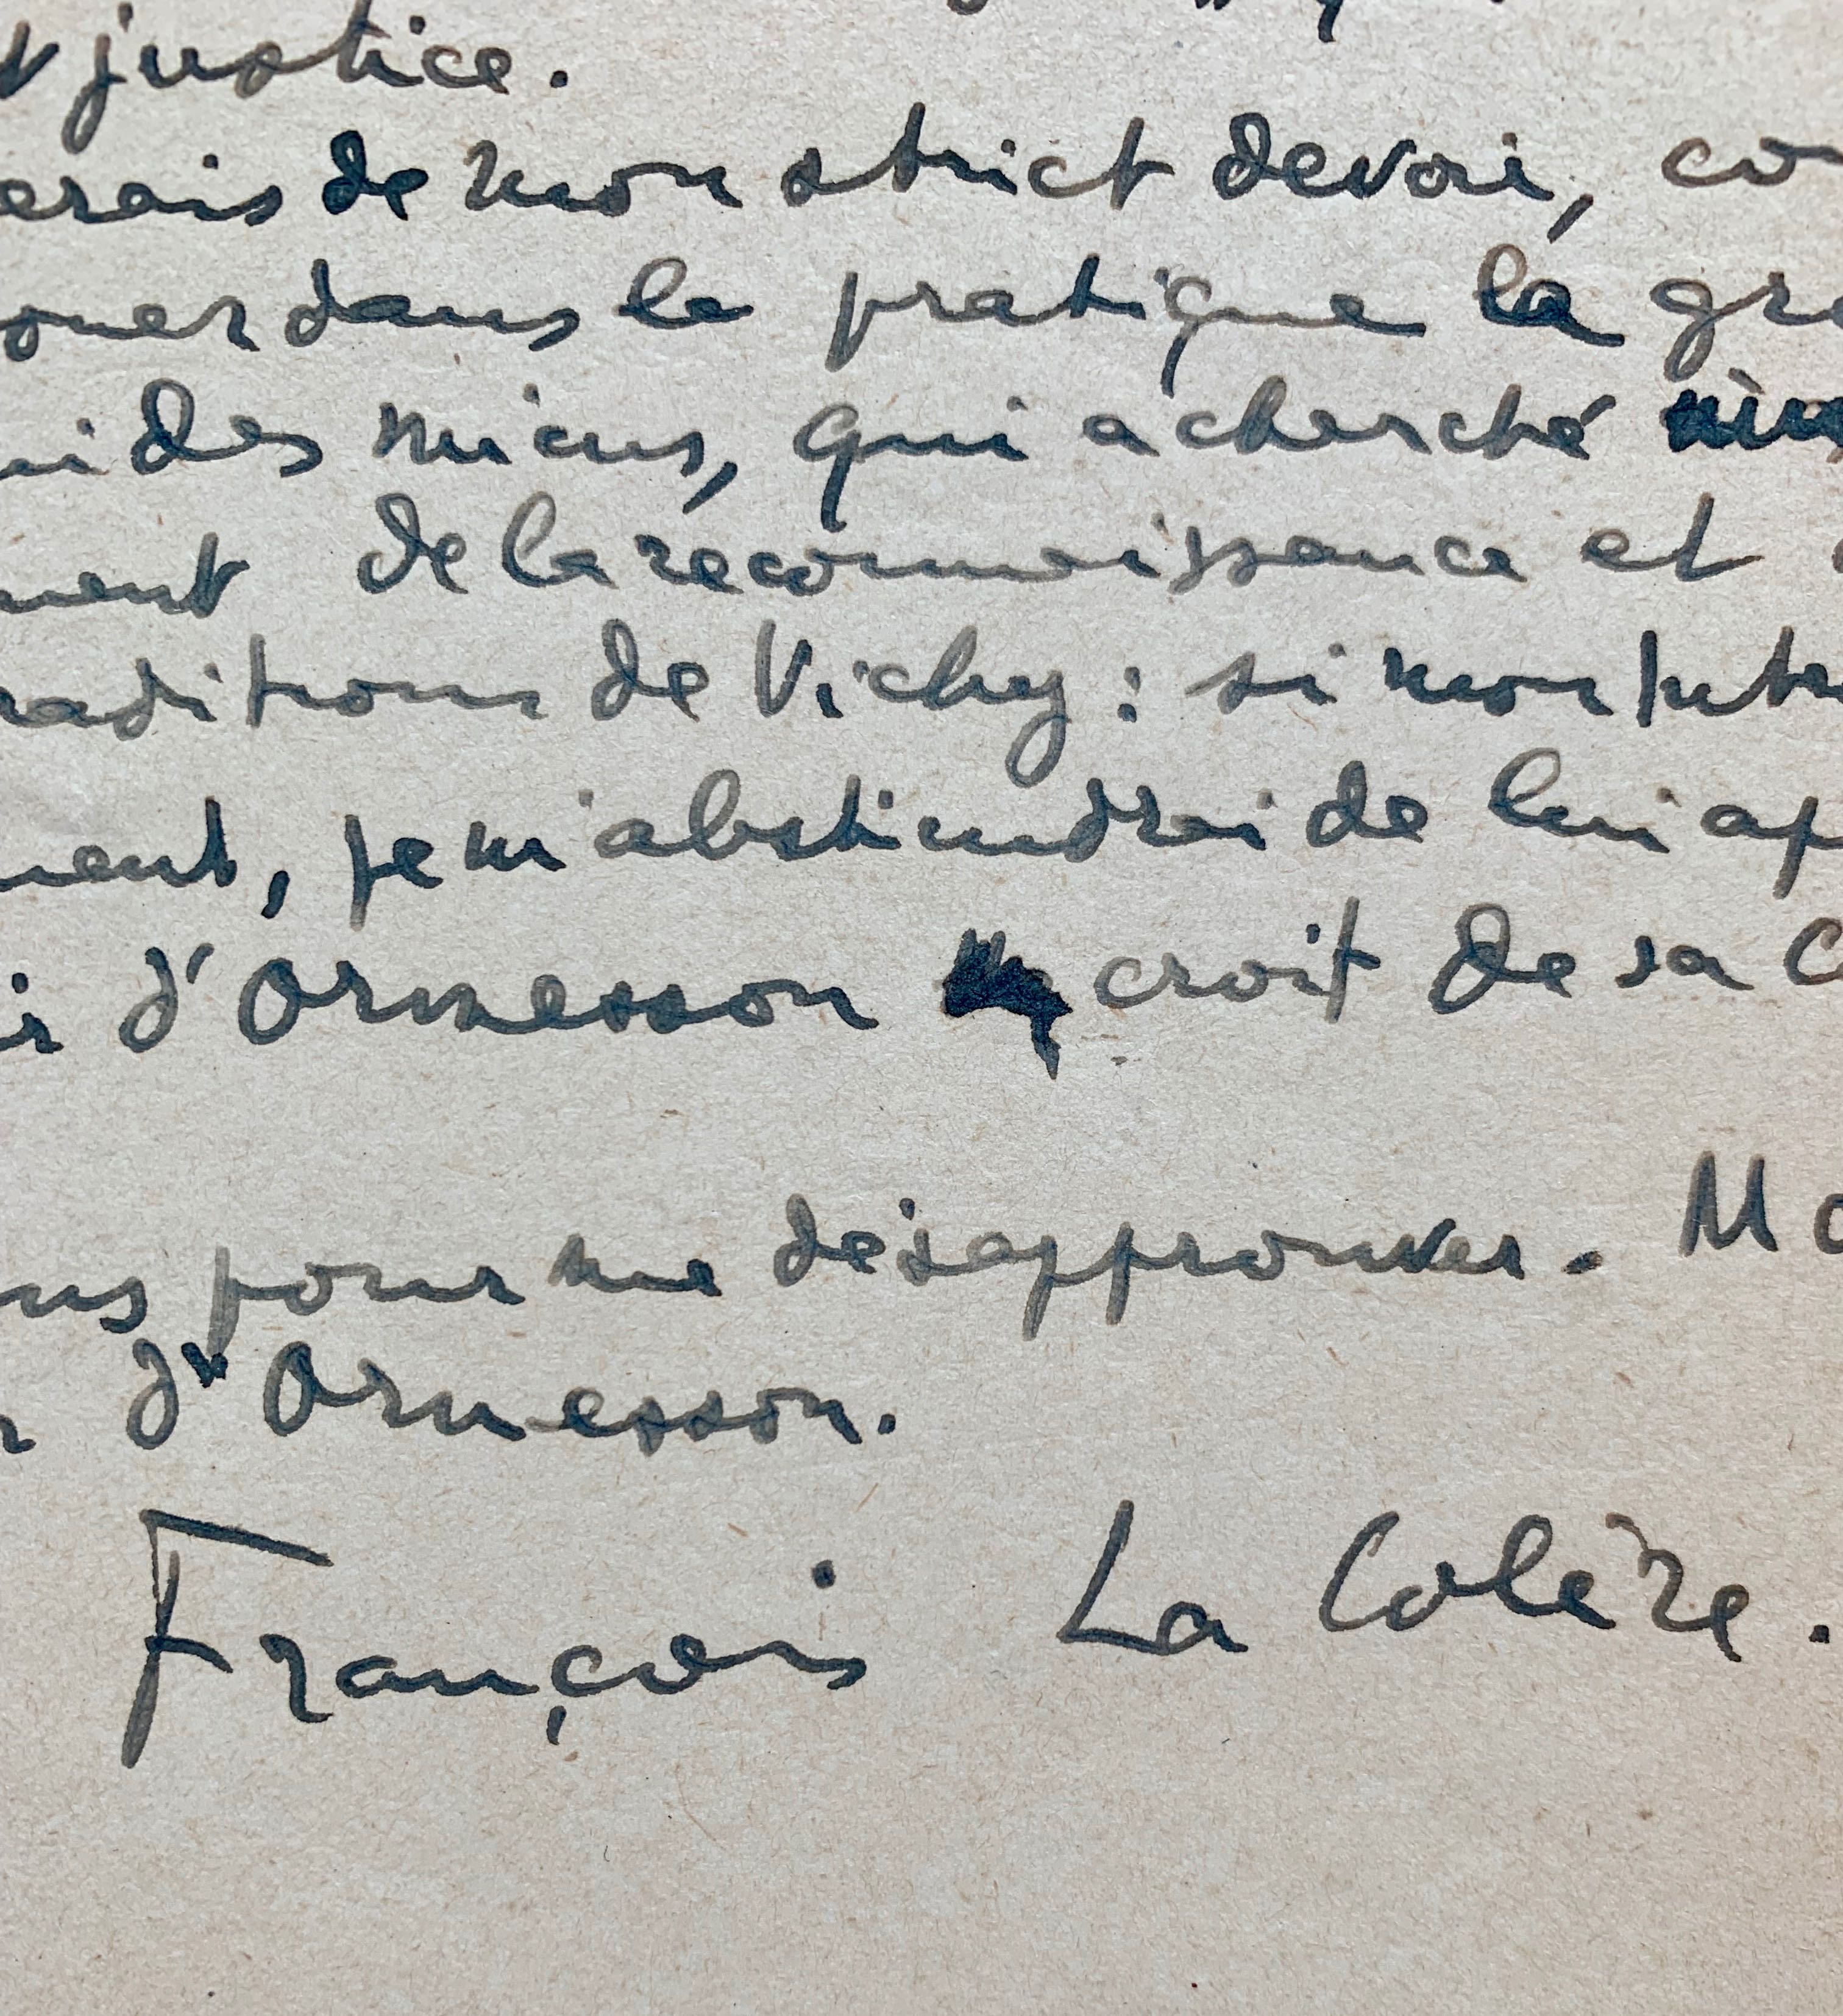 justice.
erais de mon strict devoir, co
ouer dans la pratique la gra
ui des miens, qui a cherché
ment de la reconnaissance et
raditions de Vichy : si mon
ment, je m'abstiendrai de lui ap
d'Ormesson croit de sa C
us pour me désapprouver. Ma
d'Ormesson.
François La Colère.